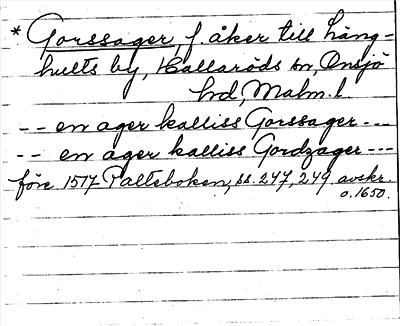 * Gorssager, f. åker till Häng-
hults by, Hallaröds sn, Onsjö
hd, Malm. l.
-- en ager kalliss Gorssager ---
-- en ager kalliss Gordzager ---
före 1517 Palteboken, ss. 247, 249 avskr.
o. 1650.